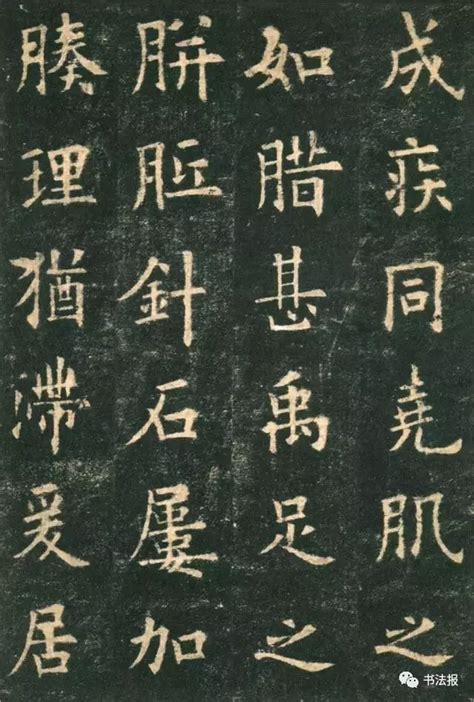 成疾同堯肌之
如腊甚禹足之
胼胝針石屢加
腠理猶滯爰居
书法报